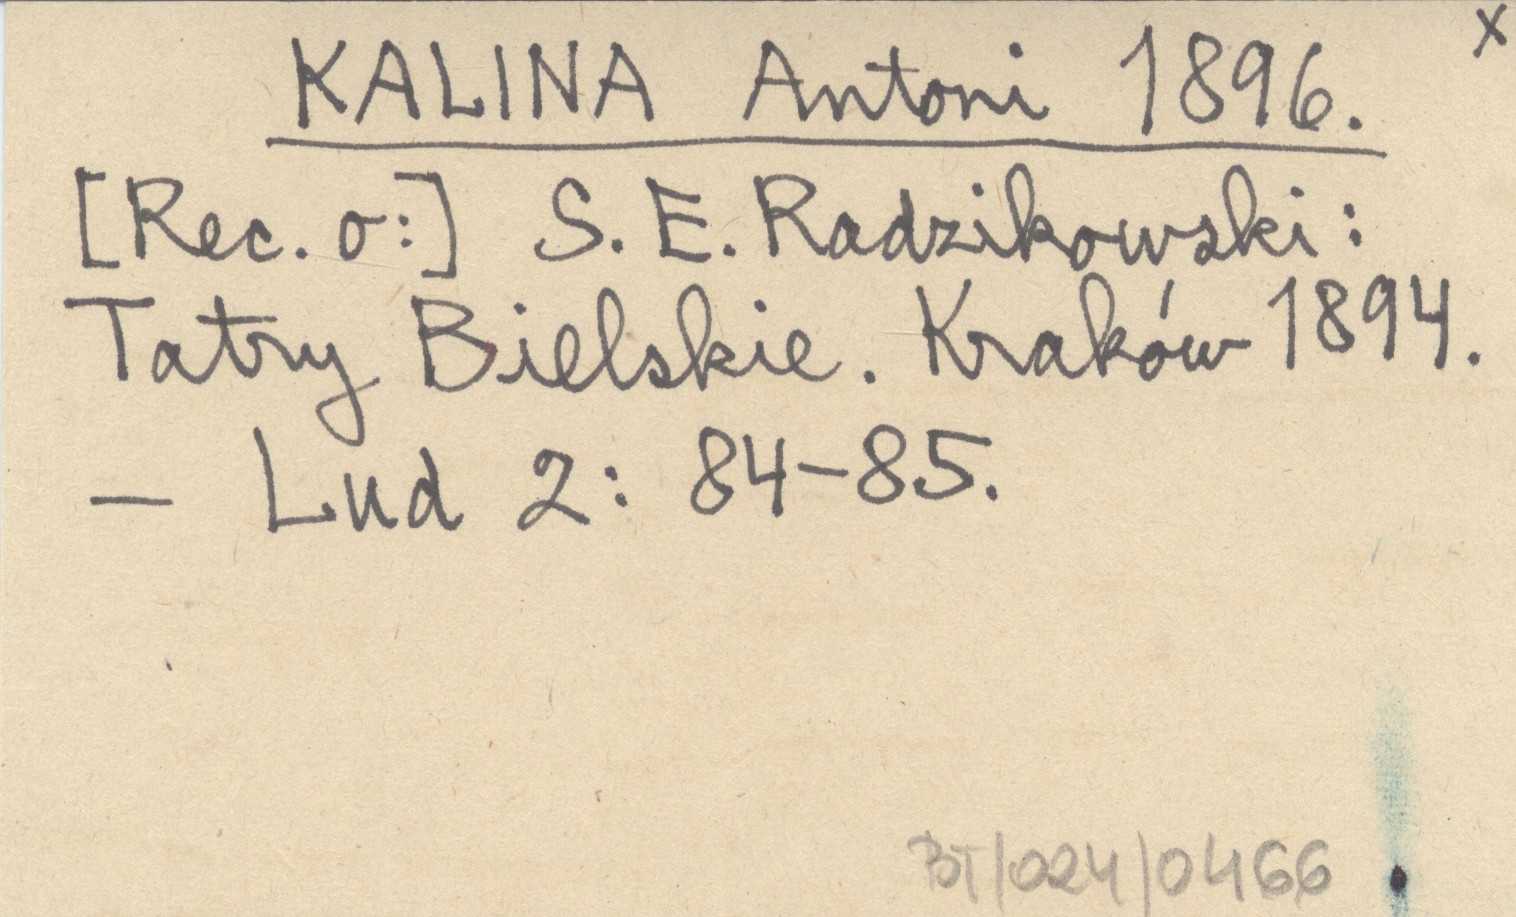 x
KALINA Antoni 1896.
[Rec. o:] S. E. Radzikowski:
Tatry Bielskie. Kraków 1894.
— Lud 2: 84-85.
BT/024/0466